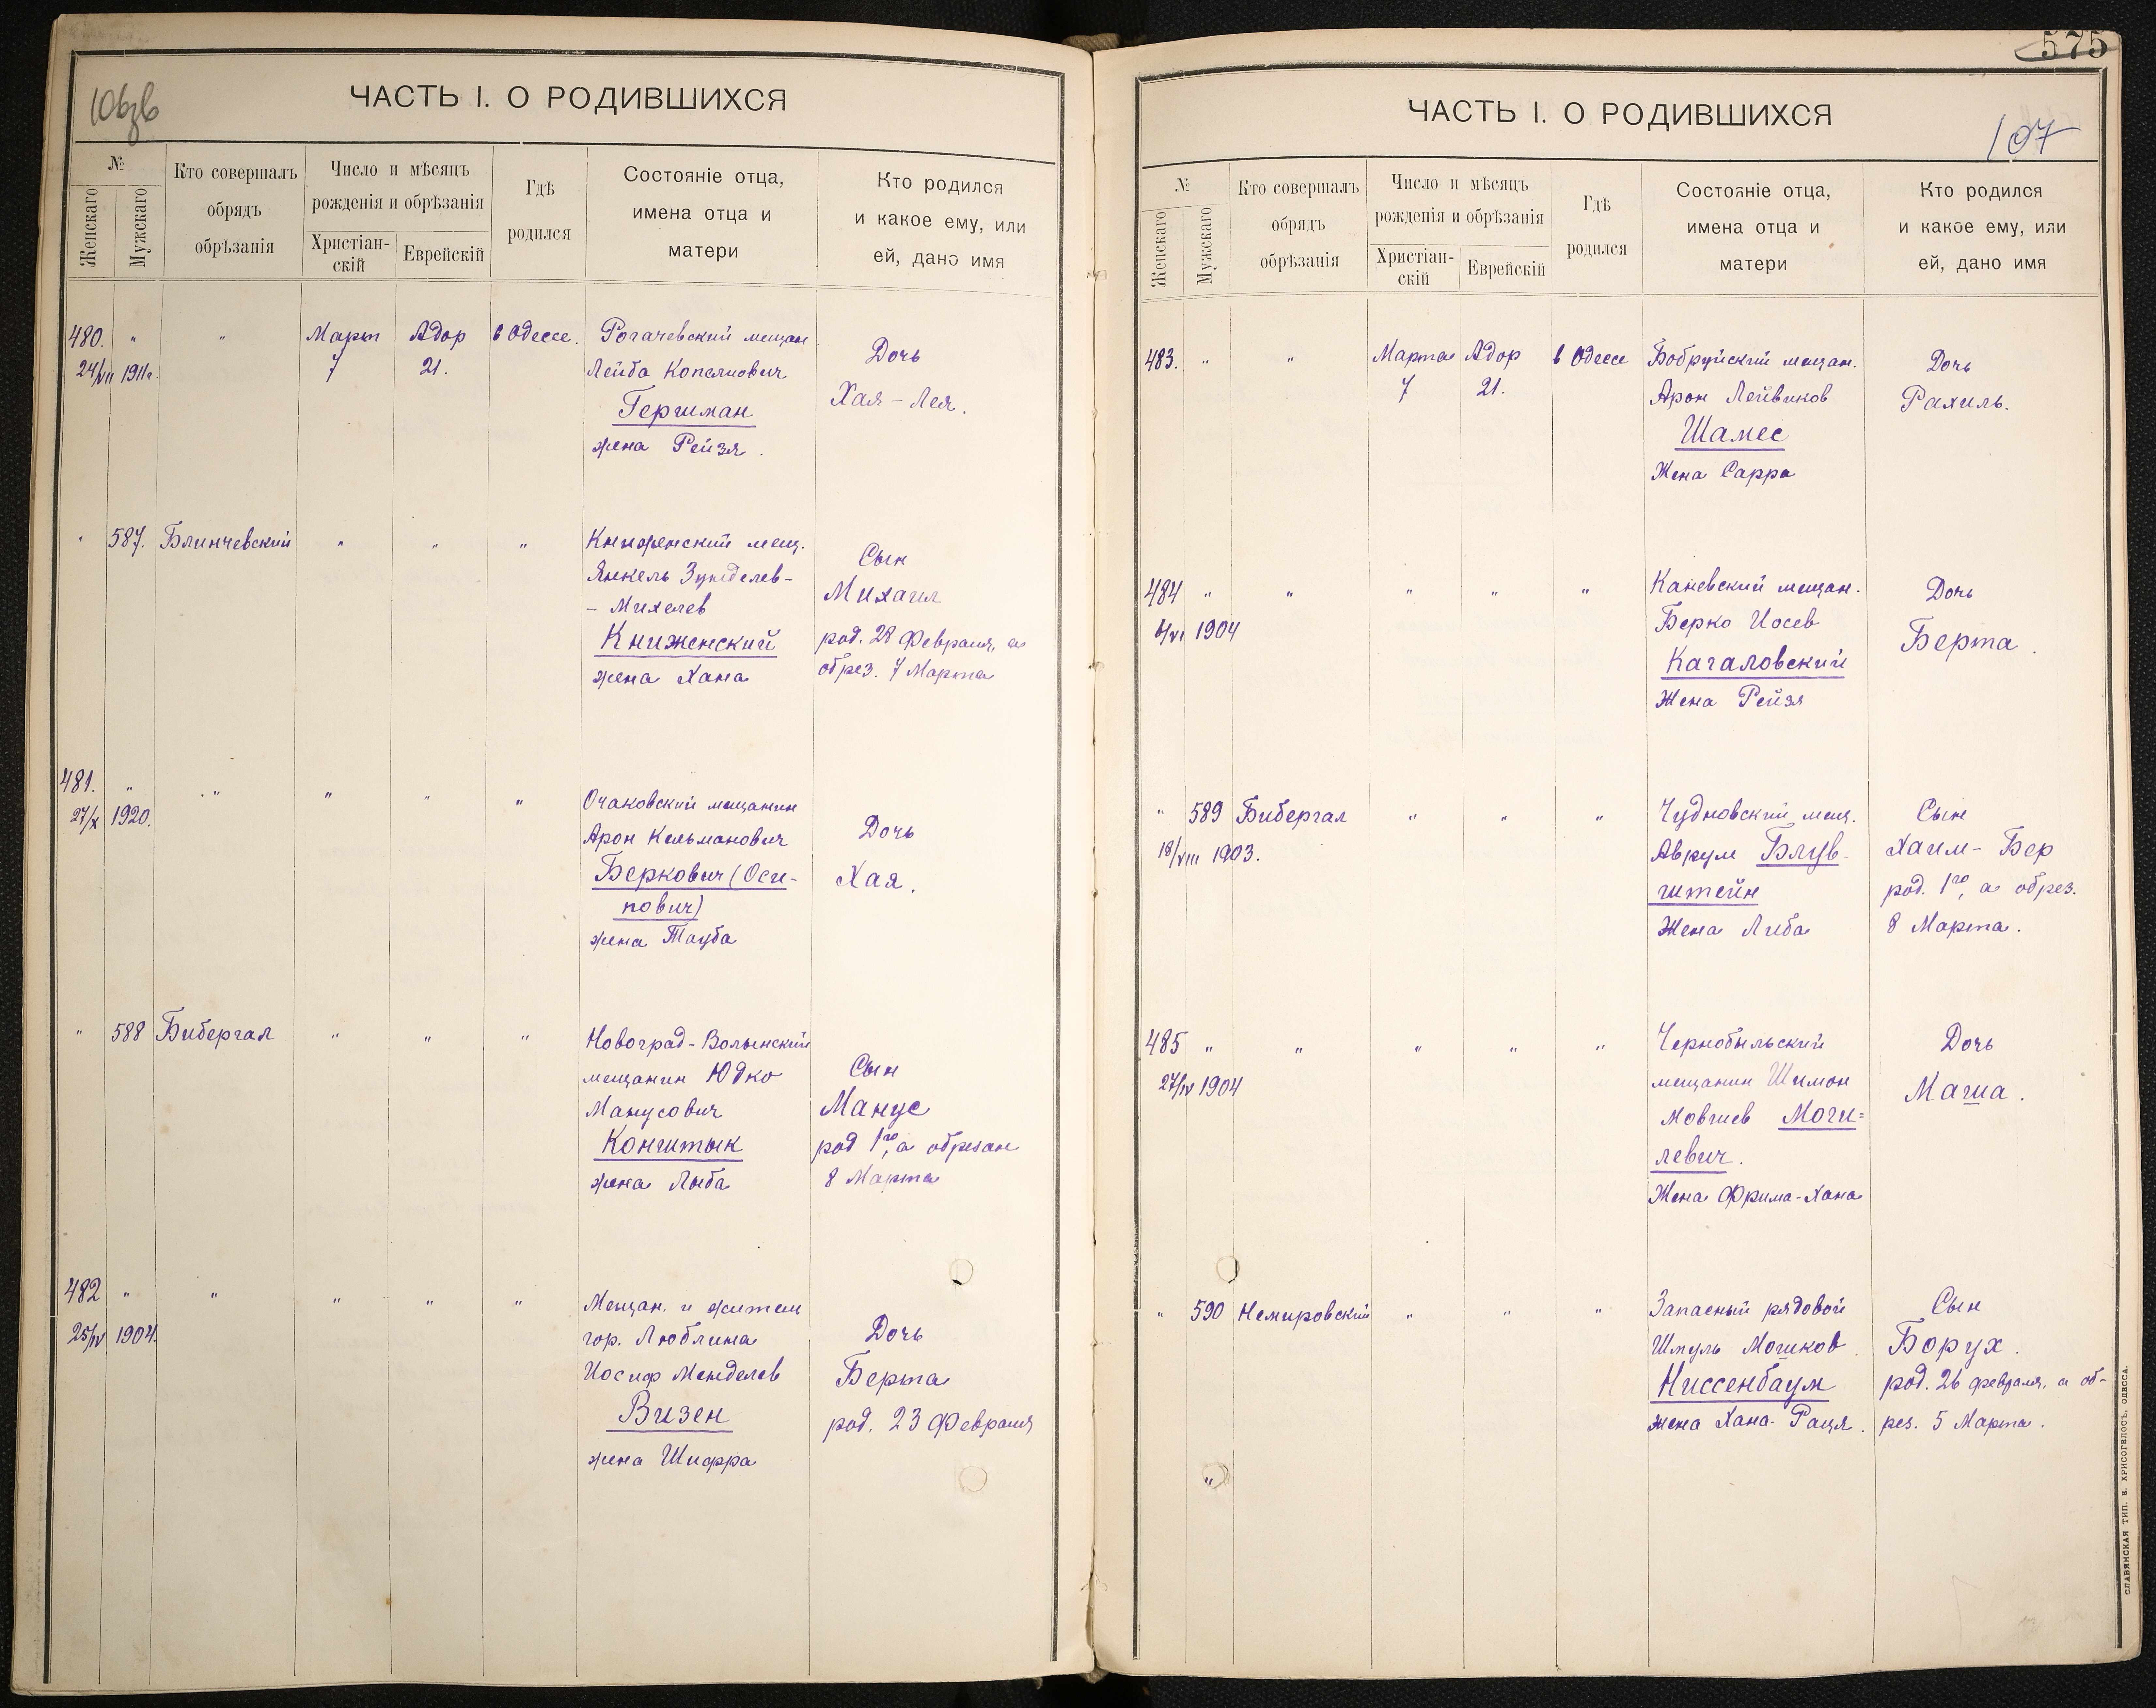 106зв
ЧАСТЬ I. О РОДИВШИХСЯ
№
Женскаго
Мужскаго
Кто совершалъ
обрядъ
обрѣзанія
Число и мѣсяцъ
рожденія и обрѣзанія
Христіан-
скій
Еврейскій
Гдѣ
родился
Состояніе отца,
имена отца и
матери
Кто родился
и какое ему, или
ей, дано имя
480. " " Март Адор в Одессе. Рогачевский мещан
24/VII 1911г. 7 21. Лейба Копелиович
Гершман
жена Рейзя.
Дочь
Хая-Лея.
" 587. Блинчевский " " " Княженский мещ.
Янкель Зунделев-
- Михелев
Книженский
жена Хана
Сын
Михаил
род. 28 Февраля, а
обрез. 7 Марта
481. " " " " " Очаковский мещанин
27/X 1920. Арон Кельманович
Беркович (Оси-
пович)
жена Тауба
Дочь
Хая.
" 588 Бибергал " " " Новоград-Волынский
мещанин Юдко
Манусович
Конштык
жена Лыба
Сын
Манус
род 1го, а обрезан
8 Марта
482 " " " " " Мещан. и жител
25/IV 1904. гор. Люблина
Иосиф Менделев
Визен
жена Шифра
Дочь
Берта
род. 23 Февраля
575
107
ЧАСТЬ I. О РОДИВШИХСЯ
№
Женскаго
Мужскаго
Кто совершалъ
обрядъ
обрѣзанія
Число и мѣсяцъ
рожденія и обрѣзанія
Христіан-
скій
Еврейскій
Гдѣ
родился
Состояніе отца,
имена отца и
матери
Кто родился
и какое ему, или
ей, дано имя
483. " " Марта Адор в Одессе Бобруйский мещан.
7 21. Арон Лейвиков
Шамес
Жена Сарра
Дочь
Рахиль.
484 " " " " " Каневский мещан.
6/VI 1904 Берко Иосев
Кагаловский
Жена Рейзя
Дочь
Берта.
" 589 Бибергал " " " Чудновский мещ.
18/VIII 1903. Аврум Блув-
штейн
Жена Либа
Сын
Хаим-Бер
род. 1го, а обрез.
8 Марта.
485 " " " " " Чернобыльский
27/IV 1904 мещанин Шимон
Мовшев Моги-
левич.
Жена Фрима-Хана
Дочь
Маша.
" 590 Немировский " " " Запасный рядовой
Шмуль Мошков
Ниссенбаум
жена Хана-Раця.
Сын
Борух.
род. 26 февраля, а об-
рез. 5 Марта.
"
СЛАВЯНСКАЯ ТИП. Е. ХРИСОГЕЛОСЪ, ОДЕССА.